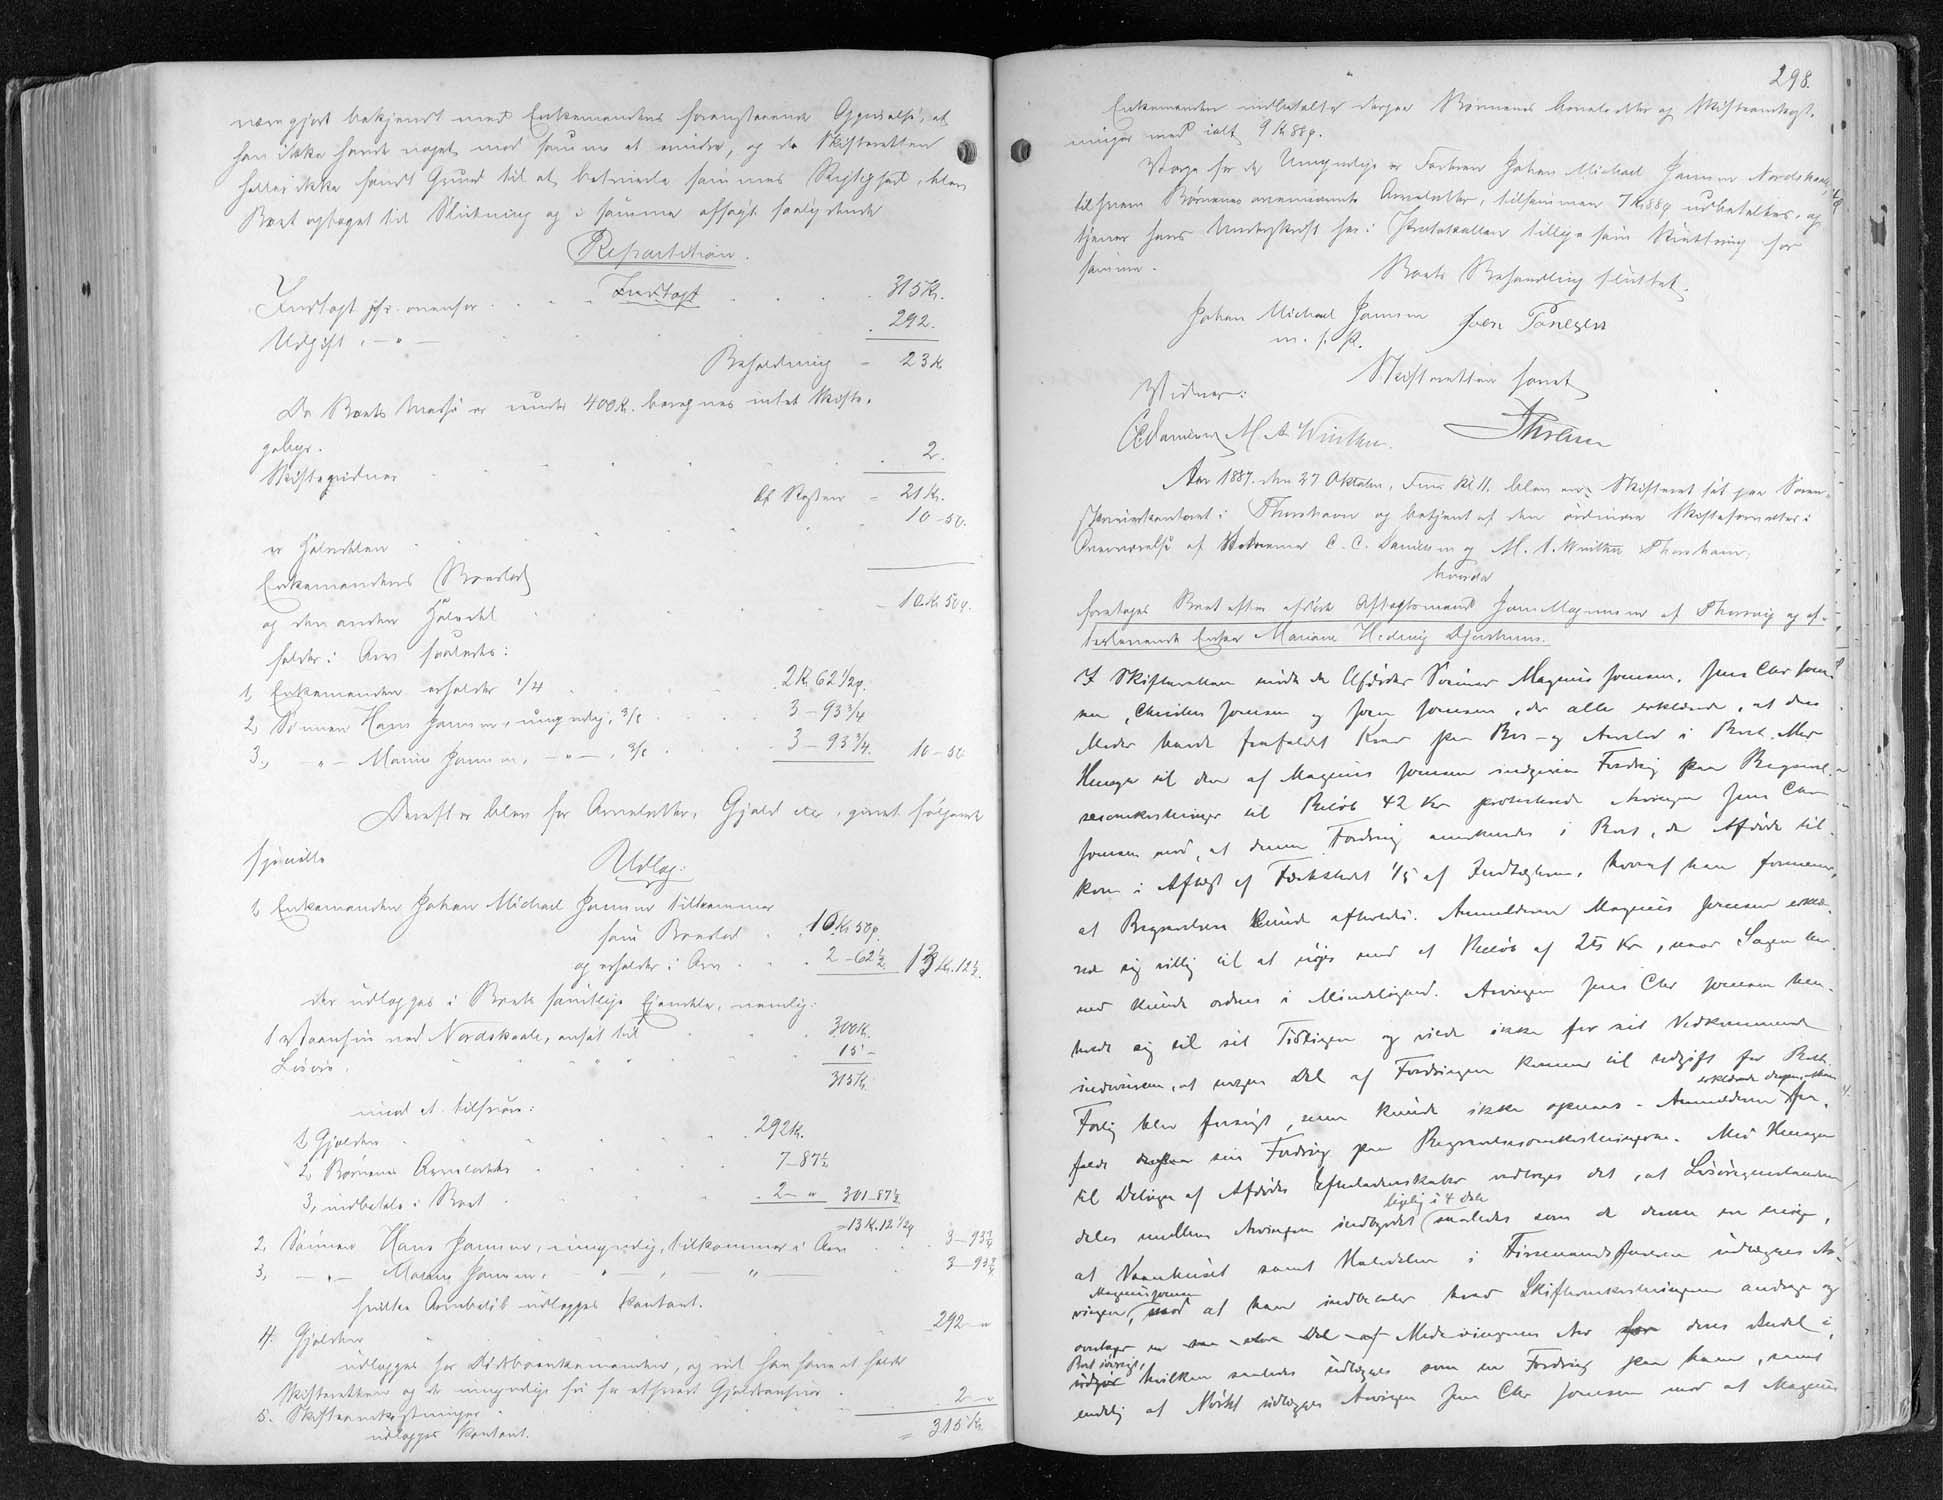 være gjort bekjendt med Enkemandens foranstaaende Opgivelse, at
han ikke havde noget mod samme at erindre, og da Skifteretten
heller ikke fandt Grund til at betvivle sammes Rigtighed, blev
Boet optaget til Slutning og i samme afsagt saalydende
Repartition.
Indtægt jfr. ovenfor Indtægt 315 Kr.
Udgift 292.
Beholdning 23 K
Da Boets Masse er under 400 Kr. beregnes intet Skifte-
gebyr.
Skiftevidner 2.
Af Resten 21 Kr.
er Halvdelen 10-50.
Enkemandens Boeslod
og den anden Halvdel 10 Kr 50 q.
falder i Arv saaledes:
1, Enkemanden erholder 1/4 2 K 62 1/2 q.
2, Sønnen Hans Jansen, umyndig, 3/8 3-93 3/4
3, -„- Marius Jansen, -„-, 3/8 3-93 3/4. 10-50
Derefter blev for Arvelodder, Gjæld etc. gjort følgende
specielle Udlæg:
1, Enkemanden Johan Michael Jansen tilkommer
som Boeslod 10 Kr 50 q.
og erholder i Arv 2-62 1/2 13 Kr. 12 1/2.
der udlægges i Boets samtlige Ejendele, nemlig:
1 Vaanhus ved Nordskaale, ansat til 300 K.
Løsøre 15 -
315 K.
mod at tilsvare:
1, Gjælden 292 K.
2, Børnenes Arvelodder 7-87 1/2
3, indbetale i Boet 2-„ 301-87 1/2
=13 K. 12 1/2 q
2, Sønnen Hans Jansen, umyndig, tilkommer i Arv 3-93 3/4
3, -„- Marius Jansen, -„- „ 3-93 3/4
hvilke Arvebeløb udlægges kontant.
4. Gjælden 292-„
udlægges hos Enkemanden, og vil han have at holde
Skifteretten og de umyndige fri for ethvert Gjældsansvar.
5. Skifteomkostninger 2-„
udlægges kontant. = 315 Kr.
298.
Enkemanden indbetalte derpaa Børnenes Arvelodder og Skifteomkost-
ninger med ialt 9 K 88 q.
Værge for de Umyndige er Faderen Johan Michael Jansen Nordskaale,
til hvem Børnenes ovennævnte Arvelodder, tilsammen 7 Kr 88 q udbetaltes, og
tjener hans Underskrift her i Protokollen tillige som Kvittering for
samme.
Boets Behandling sluttet.
Johan Michael Jansen Joen Poulsen
m. f. P.
Skifteretten hævet
Vidner:
CCDanielsen M. A. Winther.
Aar 1887. den 27 Oktober, Form. Kl 11. blev en Skifteret sat paa Soren-
skriverkontoret i Thorshavn og betjent af den ordinære Skifteforvalter i
Overværelse af Vidnerne C. C. Danielsen og M. A. Winther Thorshavn,
hvorda
foretages Boet efter afdøde Aftægtsmand Joen Magnussen af Thorsvig og ef-
terlevende Enke Mariane Hedevig Djurhuus.
I Skifteretten mødte de Afdødes Sønner Magnus Joensen, Jens Chr Joen-
sen, Christen Joensen og Joen Joensen, der alle erklærede, at deres
Moder havde frafaldet Krav paa Bos- og Arvelod i Boet. Med
Hensyn til den af Magnus Joensen indgivne Fordring paa Begravel-
sesomkostninger til Beløb 42 Kr protesterede Arvingen Jens Chr
Joensen mod, at denne Fordring anerkendes i Boet, da Afdøde til-
kom i Aftægt af Fæstestedet 1/5 af Indtægterne, hvoraf han formener,
at Begravelsen kunde afholdes. Anmelderen Magnus Joensen erklæ-
rede sig villig til at nøjes med et Beløb af 25 Kr, naar Sagen her-
ved kunde ordnes i Mindelighed. Arvingen Jens Chr Joensen hen-
holdt sig til sit Tidligere og vilde ikke for sit Vedkommende
indrømme, at nogen Del af Fordringen kommer til Udgift for Boet.
Forlig blev forsøgt, men kunde ikke opnaaes. Anmelderen erklærede derpaa, at han fra-
faldt sin Fordring paa Begravelsesomkostningerne. Med Hensyn
til Delingen af Afdødes Efterladenskaber vedtoges det, at Løsøregjenstandene
deles mellem Arvingerne indbyrdes ligelig i 4 Dele saaledes som de derom ere enige,
at Vaanhuset samt Halvdelen i Firemandsfareren udlægges Ar-
vingen Magnus Joensen, mod at han indbetaler hvad Skifteomkostningerne andrage og
overtager Medarvingernes Arv deres Andel i
Boet iøvrigt, hvilken saaledes udlægges som en Fordring paa ham, samt
endelig at Nøstet udlægges Arvingen Jens Chr Joensen mod at Magnus